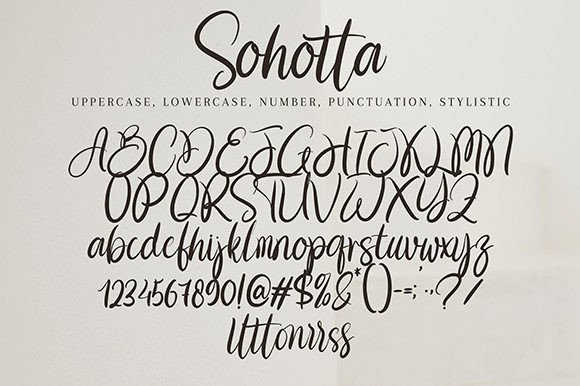 Sohotta
UPPERCASE, LOWERCASE, NUMBER, PUNCTUATION, STYLISTIC
ABCDEFGHIJKLMN
OPQRSTUVWXYZ
abcdefghijklmnopqrstuvwxyz
1234567890!@#$%&*()-=;:.,?/